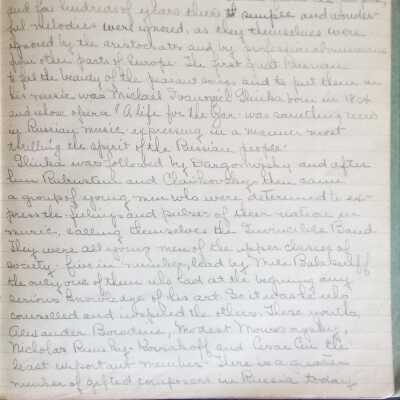 and for hundreds of years these simple and wonder-
ful melodies were ignored, as they themselves were
ignored by the aristocrats and by professional musicians
from other parts of Europe. The first great Russian
to feel the beauty of the peasant songs and to put them in
his music was Michail Ivanovich Glinka born in 1804
and whose opera "A life for the Czar" was something new
in Russian music, expressing in a manner most
thrilling the spirit of the Russian people.
Glinka was followed by Dargomwsky and after
him Rubinstein and Chaikovsky, then came
a group of young men who were determined to ex-
press the feelings and pulses of their nation in
music, calling themselves the Invincible Band.
They were all young men of the upper classes of
society - five in number, lead by Mili Balakireff
the only one of them who had at the begining any
serious knowledge of his art. So it was he who
counselled and inspired the others. These youths,
Alexander Borodine, Modest Moussorgsky,
Nicholas Rimsky-Korsakoff and Cesar Cui the
least important member. There is a
number of gifted composers in Russia today